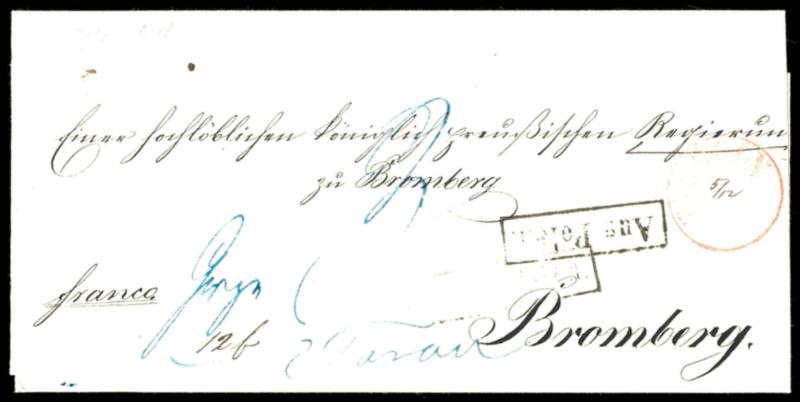 Einer hochlöblichen königlich preußischen Regierun
zu Bromberg
5/12
Aus Polen.
franco.
12 f
Bromberg.